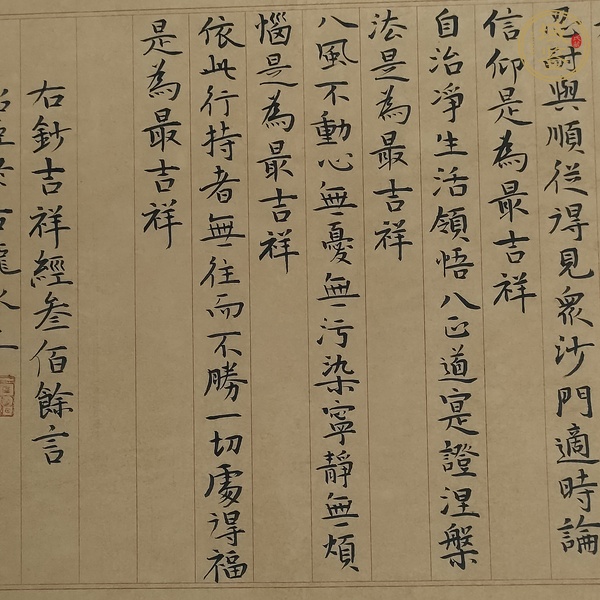 忍耐與順從得見眾沙門適時論
信仰是為最吉祥
自治淨生活領悟八正道寔證涅槃
法是為最吉祥
八風不動心無憂無污染寧靜無煩
惱是為最吉祥
依此行持者無往而不勝一切處得福
是為最吉祥
右鈔吉祥經叁佰餘言